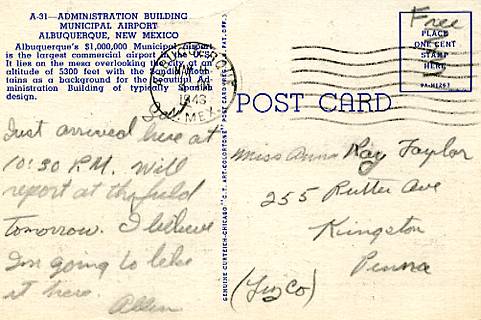 A-31—ADMINISTRATION BUILDING
MUNICIPAL AIRPORT
ALBUQUERQUE, NEW MEXICO
Albuquerque's $1,000,000 Municipal airport
is the largest commercial airport in the U. S.
It lies on the mesa overlooking the city, at an
altitude of 5300 feet with the Sandia Moun-
tains as a background for the beautiful Ad-
ministration Building of typically Spanish
design.
Just arrived here at
10:30 P.M. Will
report at the field
tomorrow. I believe
I'm going to like
it here.
Allen
ALBUQUERQUE
1943
N. MEX.
GENUINE CURTEICH-CHICAGO "C.T. ART-COLORTONE" POST CARD
POST CARD
Free
PLACE
ONE CENT
STAMP
HERE
Miss Anna Kay Taylor
255 Rutter Ave
Kingston
Penna
(Luz Co)